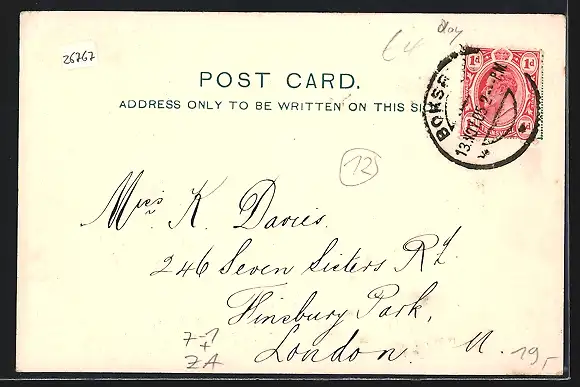 26767
POST CARD.
ADDRESS ONLY TO BE WRITTEN ON THIS SI
1d 1d
BOKSB
13 NOV 05 2 PM
12
Miss K. Davies.
246 Seven Sisters Rd.
Finsbury Park,
London. N.
ZA
19,-